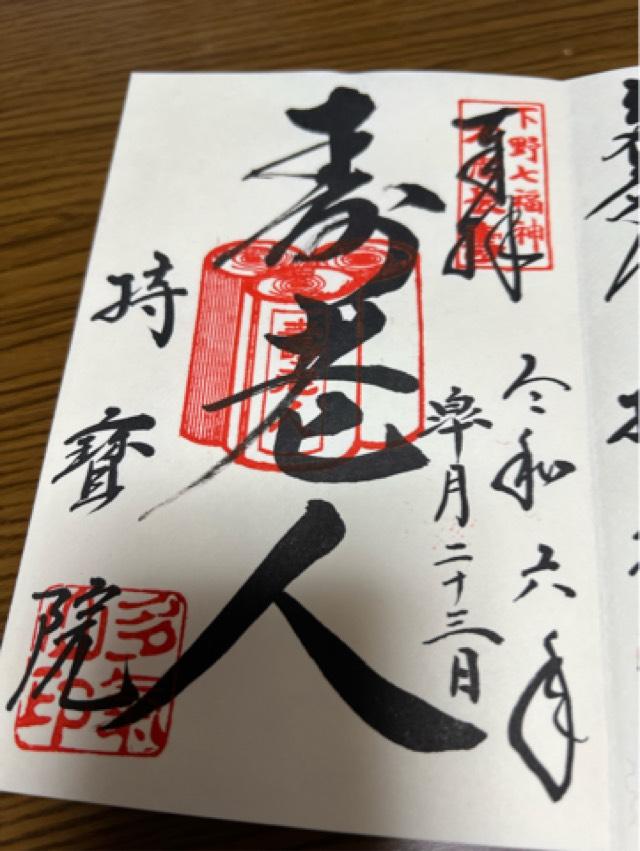 奉拝
下野七福神
令和六年
皐月二十三日
寿老人
持寳院